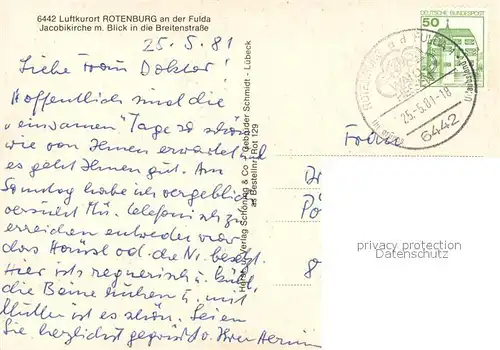 6442 Luftkurort ROTENBURG an der Fulda
Jacobikirche m. Blick in die Breitenstraße
25.5.81
Liebe Frau Doktor!
Hoffentlich sind die
"einsamen" Tage so schön
wie von Ihnen erwartet
es geht Ihnen gut. Am
Samstag habe ich vergeblich
versucht Mü. telefonisch zu
erreichen entweder war
das Häusl od. die Nr. besetzt.
Hier ist's regnerisch u. kühl
die Beine ruhen u. mit
Mutter ist es schön. Seien
Sie herzlichst gegrüßt v. Ihrer
Verlag Schöning & Co Gebrüder Schmidt - Lübeck
Bestellnr. Rot 129
DEUTSCHE BUNDESPOST
50
25.-5.81-18
6442
Frau
Dr
Pö
8
privacy protection
Datenschutz